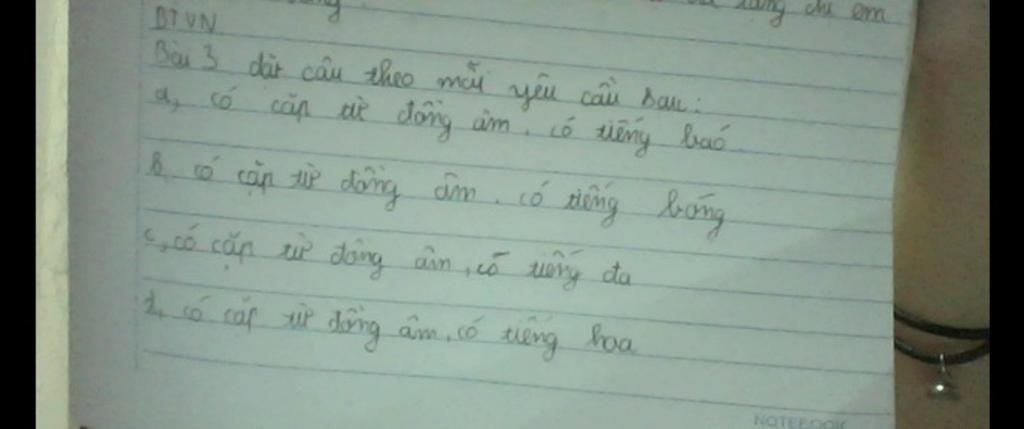 dung chỉ em
BTVN
Bài 3 đặt câu theo mỗi yêu cầu sau:
a, có cặp từ đồng âm, có tiếng báo
b. có cặp từ đồng âm, có tiếng bóng
c, có cặp từ đồng âm, có tiếng đa
d, có cặp từ đồng âm, có tiếng hoa
NOTEBOOK